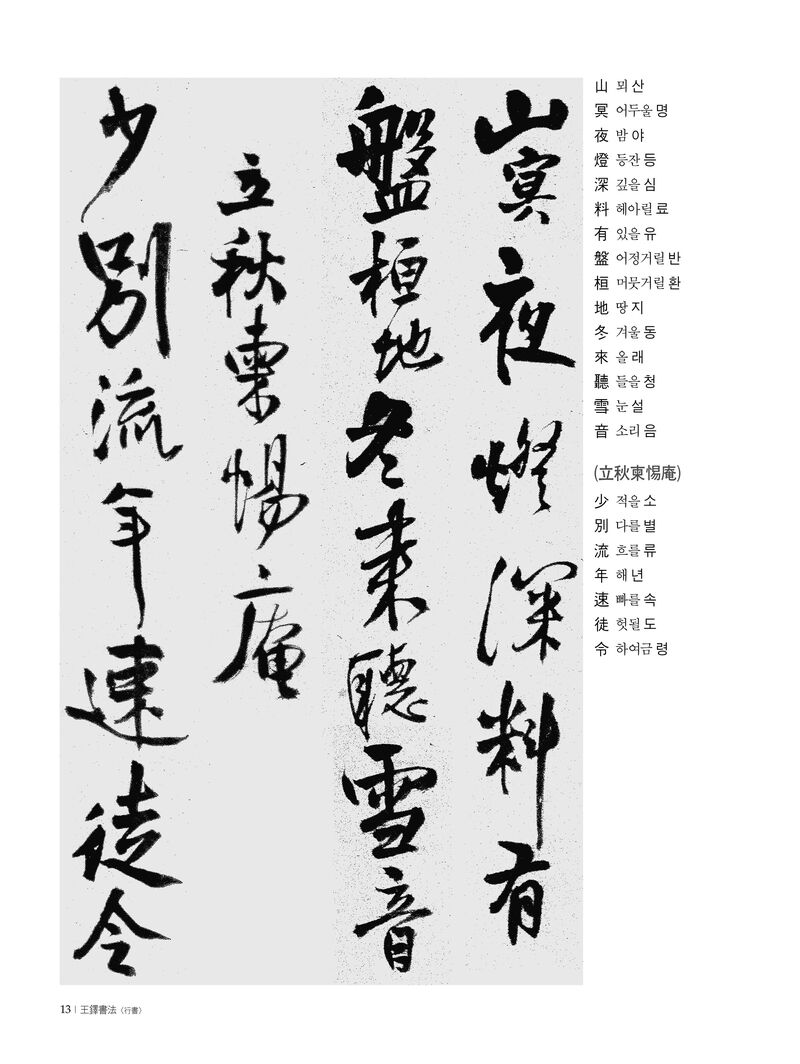 山冥夜燈深料有
盤桓地冬來聽雪音
立秋柬惕庵
少別流年速徒令
山 뫼 산
冥 어두울 명
夜 밤 야
燈 등잔 등
深 깊을 심
料 헤아릴 료
有 있을 유
盤 어정거릴 반
桓 머뭇거릴 환
地 땅 지
冬 겨울 동
來 올 래
聽 들을 청
雪 눈 설
音 소리 음
(立秋柬惕庵)
少 적을 소
別 다를 별
流 흐를 류
年 해 년
速 빠를 속
徒 헛될 도
令 하여금 령
13 | 王鐸書法〈行書〉